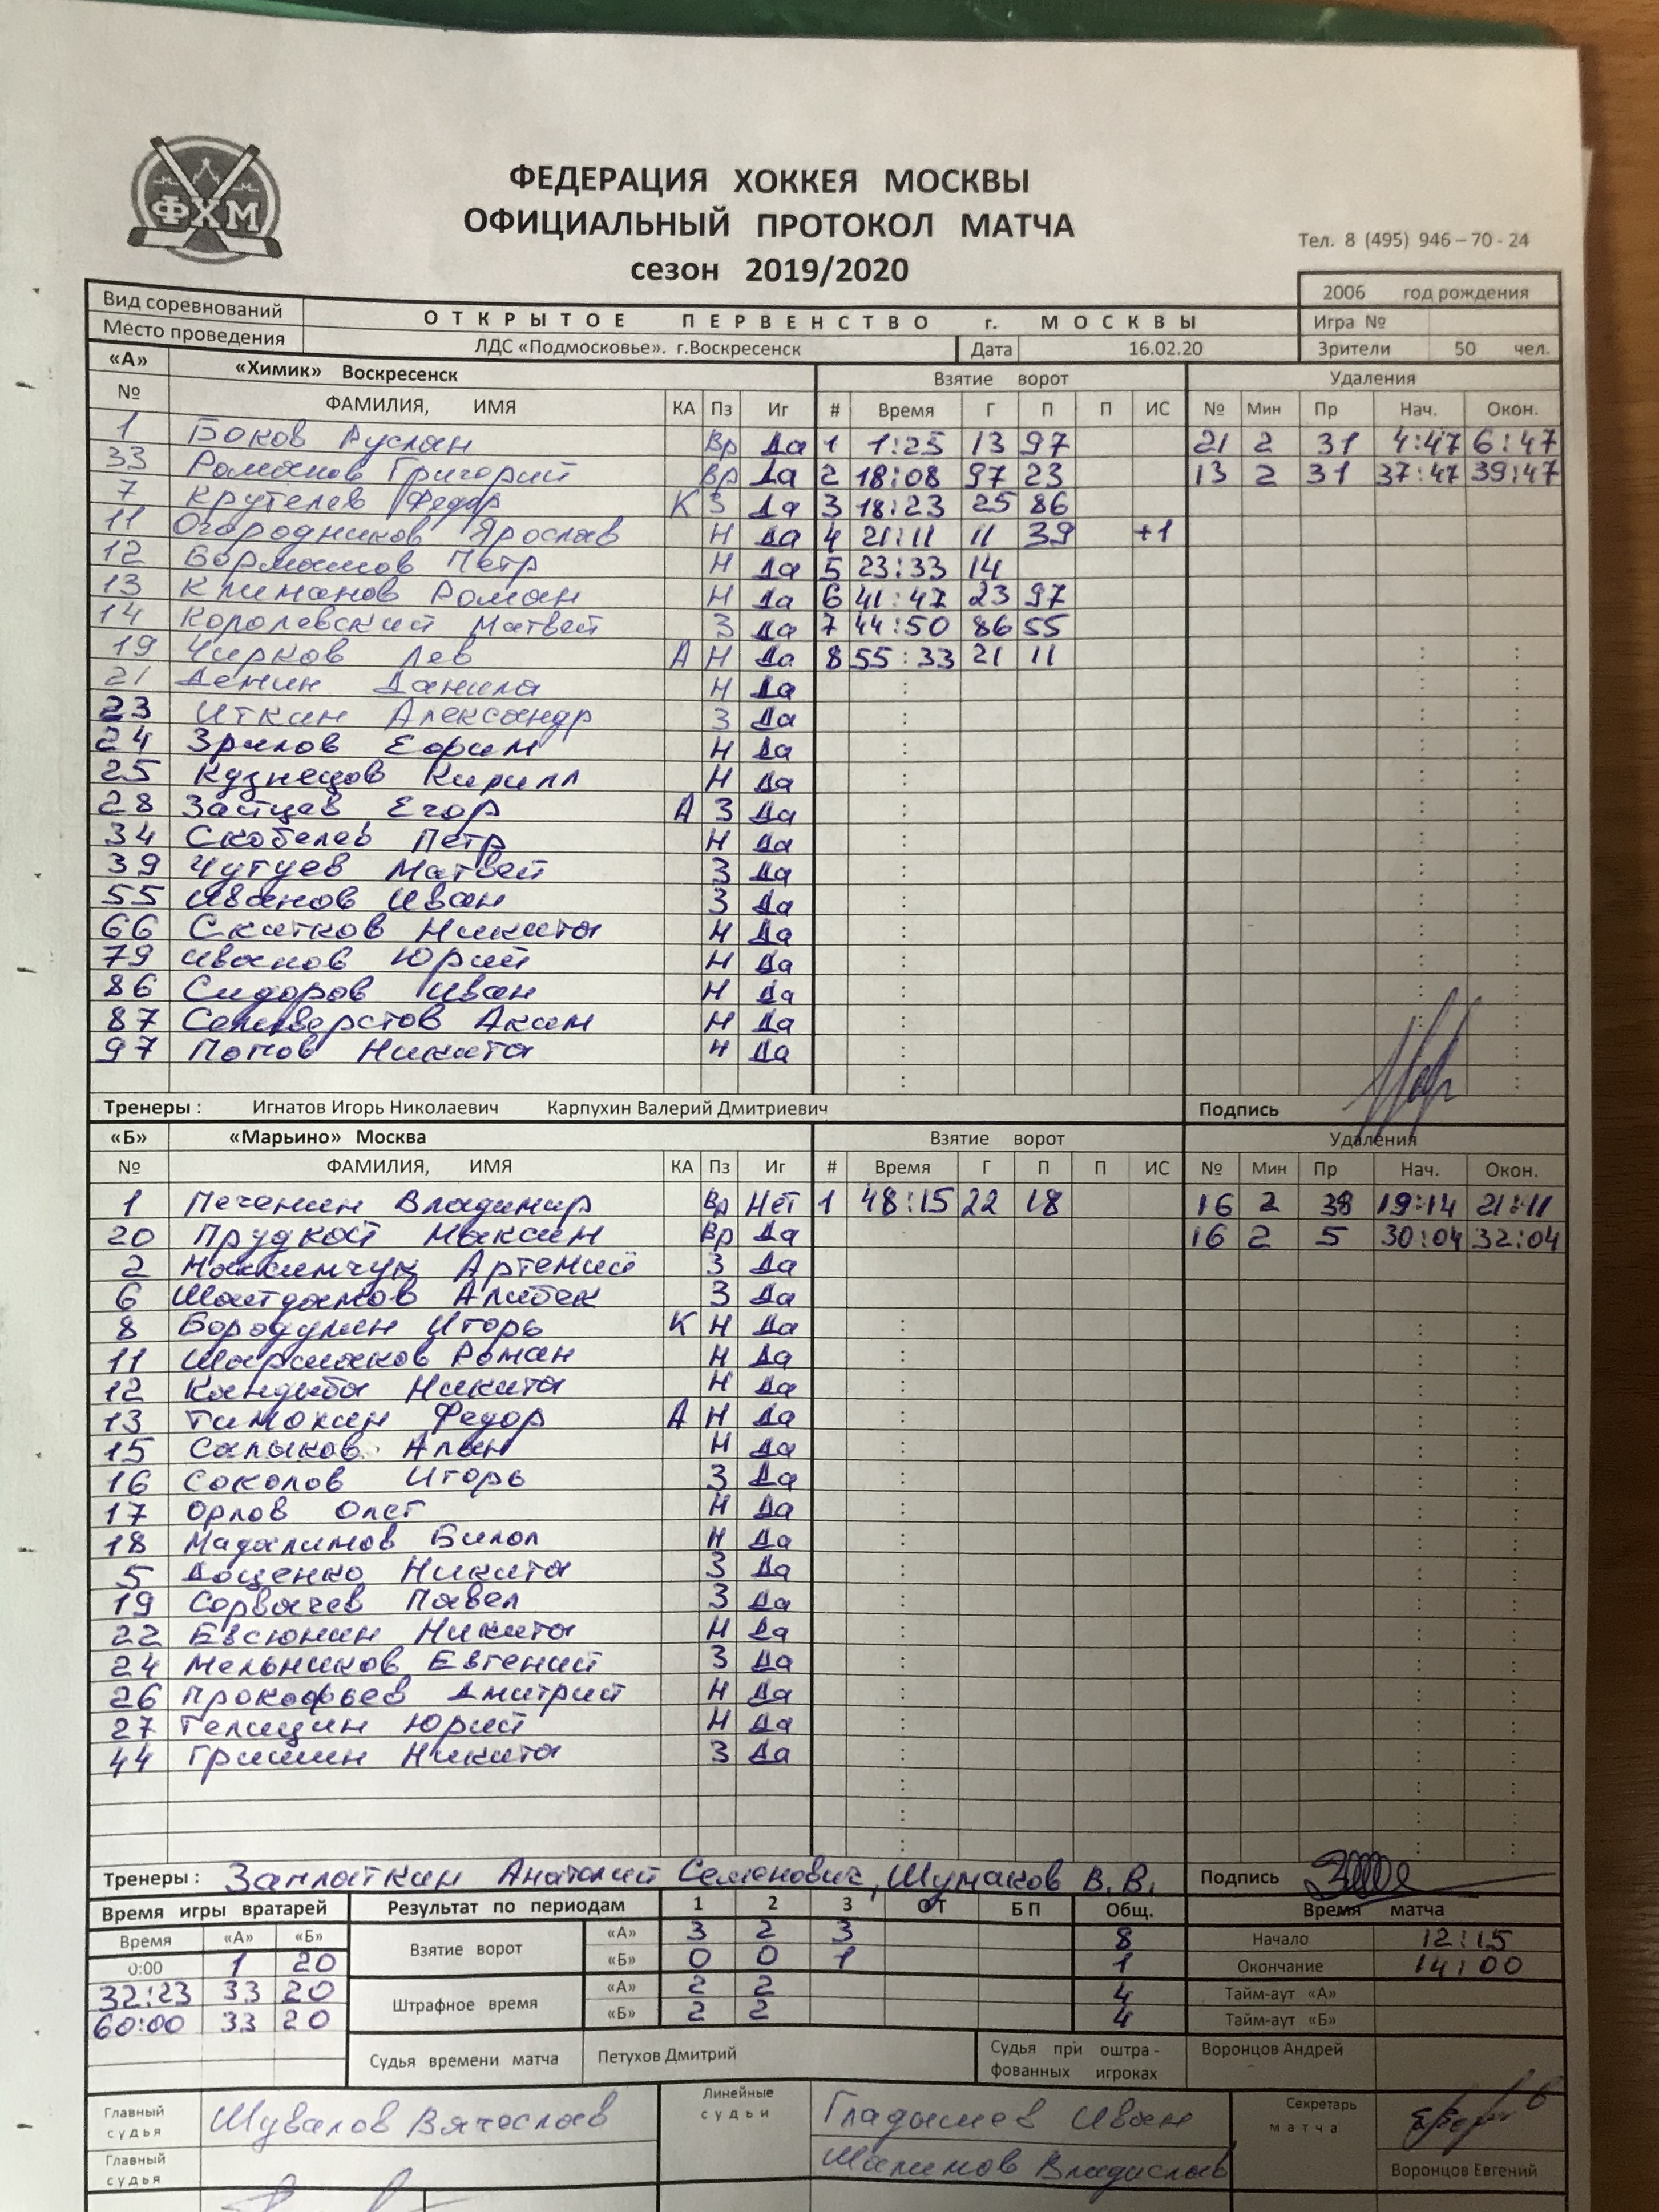 ФХМ
ФЕДЕРАЦИЯ ХОККЕЯ МОСКВЫ
ОФИЦИАЛЬНЫЙ ПРОТОКОЛ МАТЧА
Тел. 8 (495) 946 – 70 - 24
сезон 2019/2020
Вид соревнований ОТКРЫТОЕ ПЕРВЕНСТВО г. МОСКВЫ 2006 год рождения
Игра №
Место проведения ЛДС «Подмосковье». г.Воскресенск Дата 16.02.20 Зрители 50 чел.
«А» «Химик» Воскресенск Взятие ворот Удаления
№ ФАМИЛИЯ, ИМЯ КА Пз Иг # Время Г П П ИС № Мин Пр Нач. Окон.
1 Боков Руслан Вр Да 1 1:25 13 97 21 2 31 4:47 6:47
33 Романов Григорий Вр Да 2 18:08 97 23 13 2 31 37:47 39:47
7 Крутелев Федор К З Да 3 18:23 25 86
11 Огородников Ярослав Н Да 4 21:11 11 39 +1
12 Петр Н Да 5 23:33 14
13 Климанов Роман Н Да 6 41:47 23 97
14 Королевский Матвей З Да 7 44:50 86 55
19 Чирков Лев А Н Да 8 55:33 21 11
21 Демин Данила Н Да
23 Иткин Александр З Да
24 Зрилов Ефрим Н Да
25 Кузнецов Кирилл Н Да
28 Зайцев Егор А З Да
34 Скобелев Петр Н Да
39 Чутуев Матвей З Да
55 Иванов Иван З Да
66 Скитков Никита Н Да
79 Иванов Юрий Н Да
86 Сидоров Иван Н Да
87 Селиверстов Аким Н Да
97 Попов Никита Н Да
Тренеры : Игнатов Игорь Николаевич Карпухин Валерий Дмитриевич Подпись
«Б» «Марьино» Москва Взятие ворот Удаления
№ ФАМИЛИЯ, ИМЯ КА Пз Иг # Время Г П П ИС № Мин Пр Нач. Окон.
1 Печенин Владимир Вр Нет 1 48:15 22 18 16 2 39 19:14 21:11
20 Прудкой Максим Вр Да 16 2 5 30:04 32:04
2 Артемий З Да
6 Шайдамов Алибек З Да
8 Бородулин Игорь К Н Да
11 Шаршаков Роман Н Да
12 Кандыба Никита Н Да
13 Тимохин Федор А Н Да
15 Салыков Алан Н Да
16 Соколов Игорь З Да
17 Орлов Олег Н Да
18 Мадалимов Билол Н Да
5 Доценко Никита З Да
19 Сорвачев Павел З Да
22 Евсюнин Никита Н Да
24 Мельников Евгений З Да
26 Прокофьев Дмитрий Н Да
27 Телицин Юрий Н Да
44 Гришин Никита З Да
Тренеры : Заплаткин Анатолий Семенович, Шумаков В.В. Подпись
Время игры вратарей Результат по периодам 1 2 3 ОТ БП Общ. Время матча
Время «А» «Б» Взятие ворот «А» 3 2 3 8 Начало 12:15
0:00 1 20 «Б» 0 0 1 1 Окончание 14:00
32:23 33 20 Штрафное время «А» 2 2 4 Тайм-аут «А»
60:00 33 20 «Б» 2 2 4 Тайм-аут «Б»
Судья времени матча Петухов Дмитрий Судья при оштра - фованных игроках Воронцов Андрей
Главный судья Шувалов Вячеслав Линейные судьи Гладышев Иван Секретарь матча
Главный судья Шалимов Владислав Воронцов Евгений